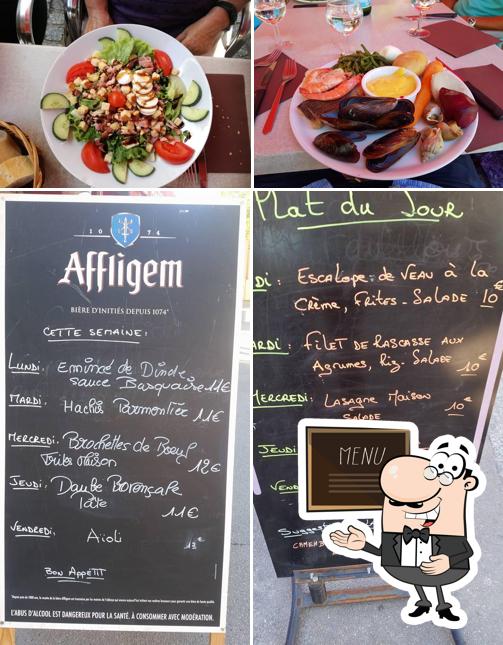 10 74
Affligem
BIÈRE D'INITIÉS DEPUIS 1074*
CETTE SEMAINE:
LUNDI: Emincé de Dinde
sauce Basquaise 11€
MARDI: Hachis Parmentier 11€
MERCREDI: Brochettes de Boeuf
Frites Maison 12€
JEUDI: Daube Provençale
Pâte 11€
VENDREDI: Aïoli 13€
BON APPÉTIT
L'ABUS D'ALCOOL EST DANGEREUX POUR LA SANTÉ. À CONSOMMER AVEC MODÉRATION.
Plat du Jour
DI: ESCALOPE DE VEAU À LA
CRÈME, FRITES - SALADE 10€
ARDI: FILET DE RASCASSE AUX
AGRUMES, Riz, SALADE 10€
MERCREDI: LASAGNE MAISON 10€
SALADE
JEUDI
VEND
MENU